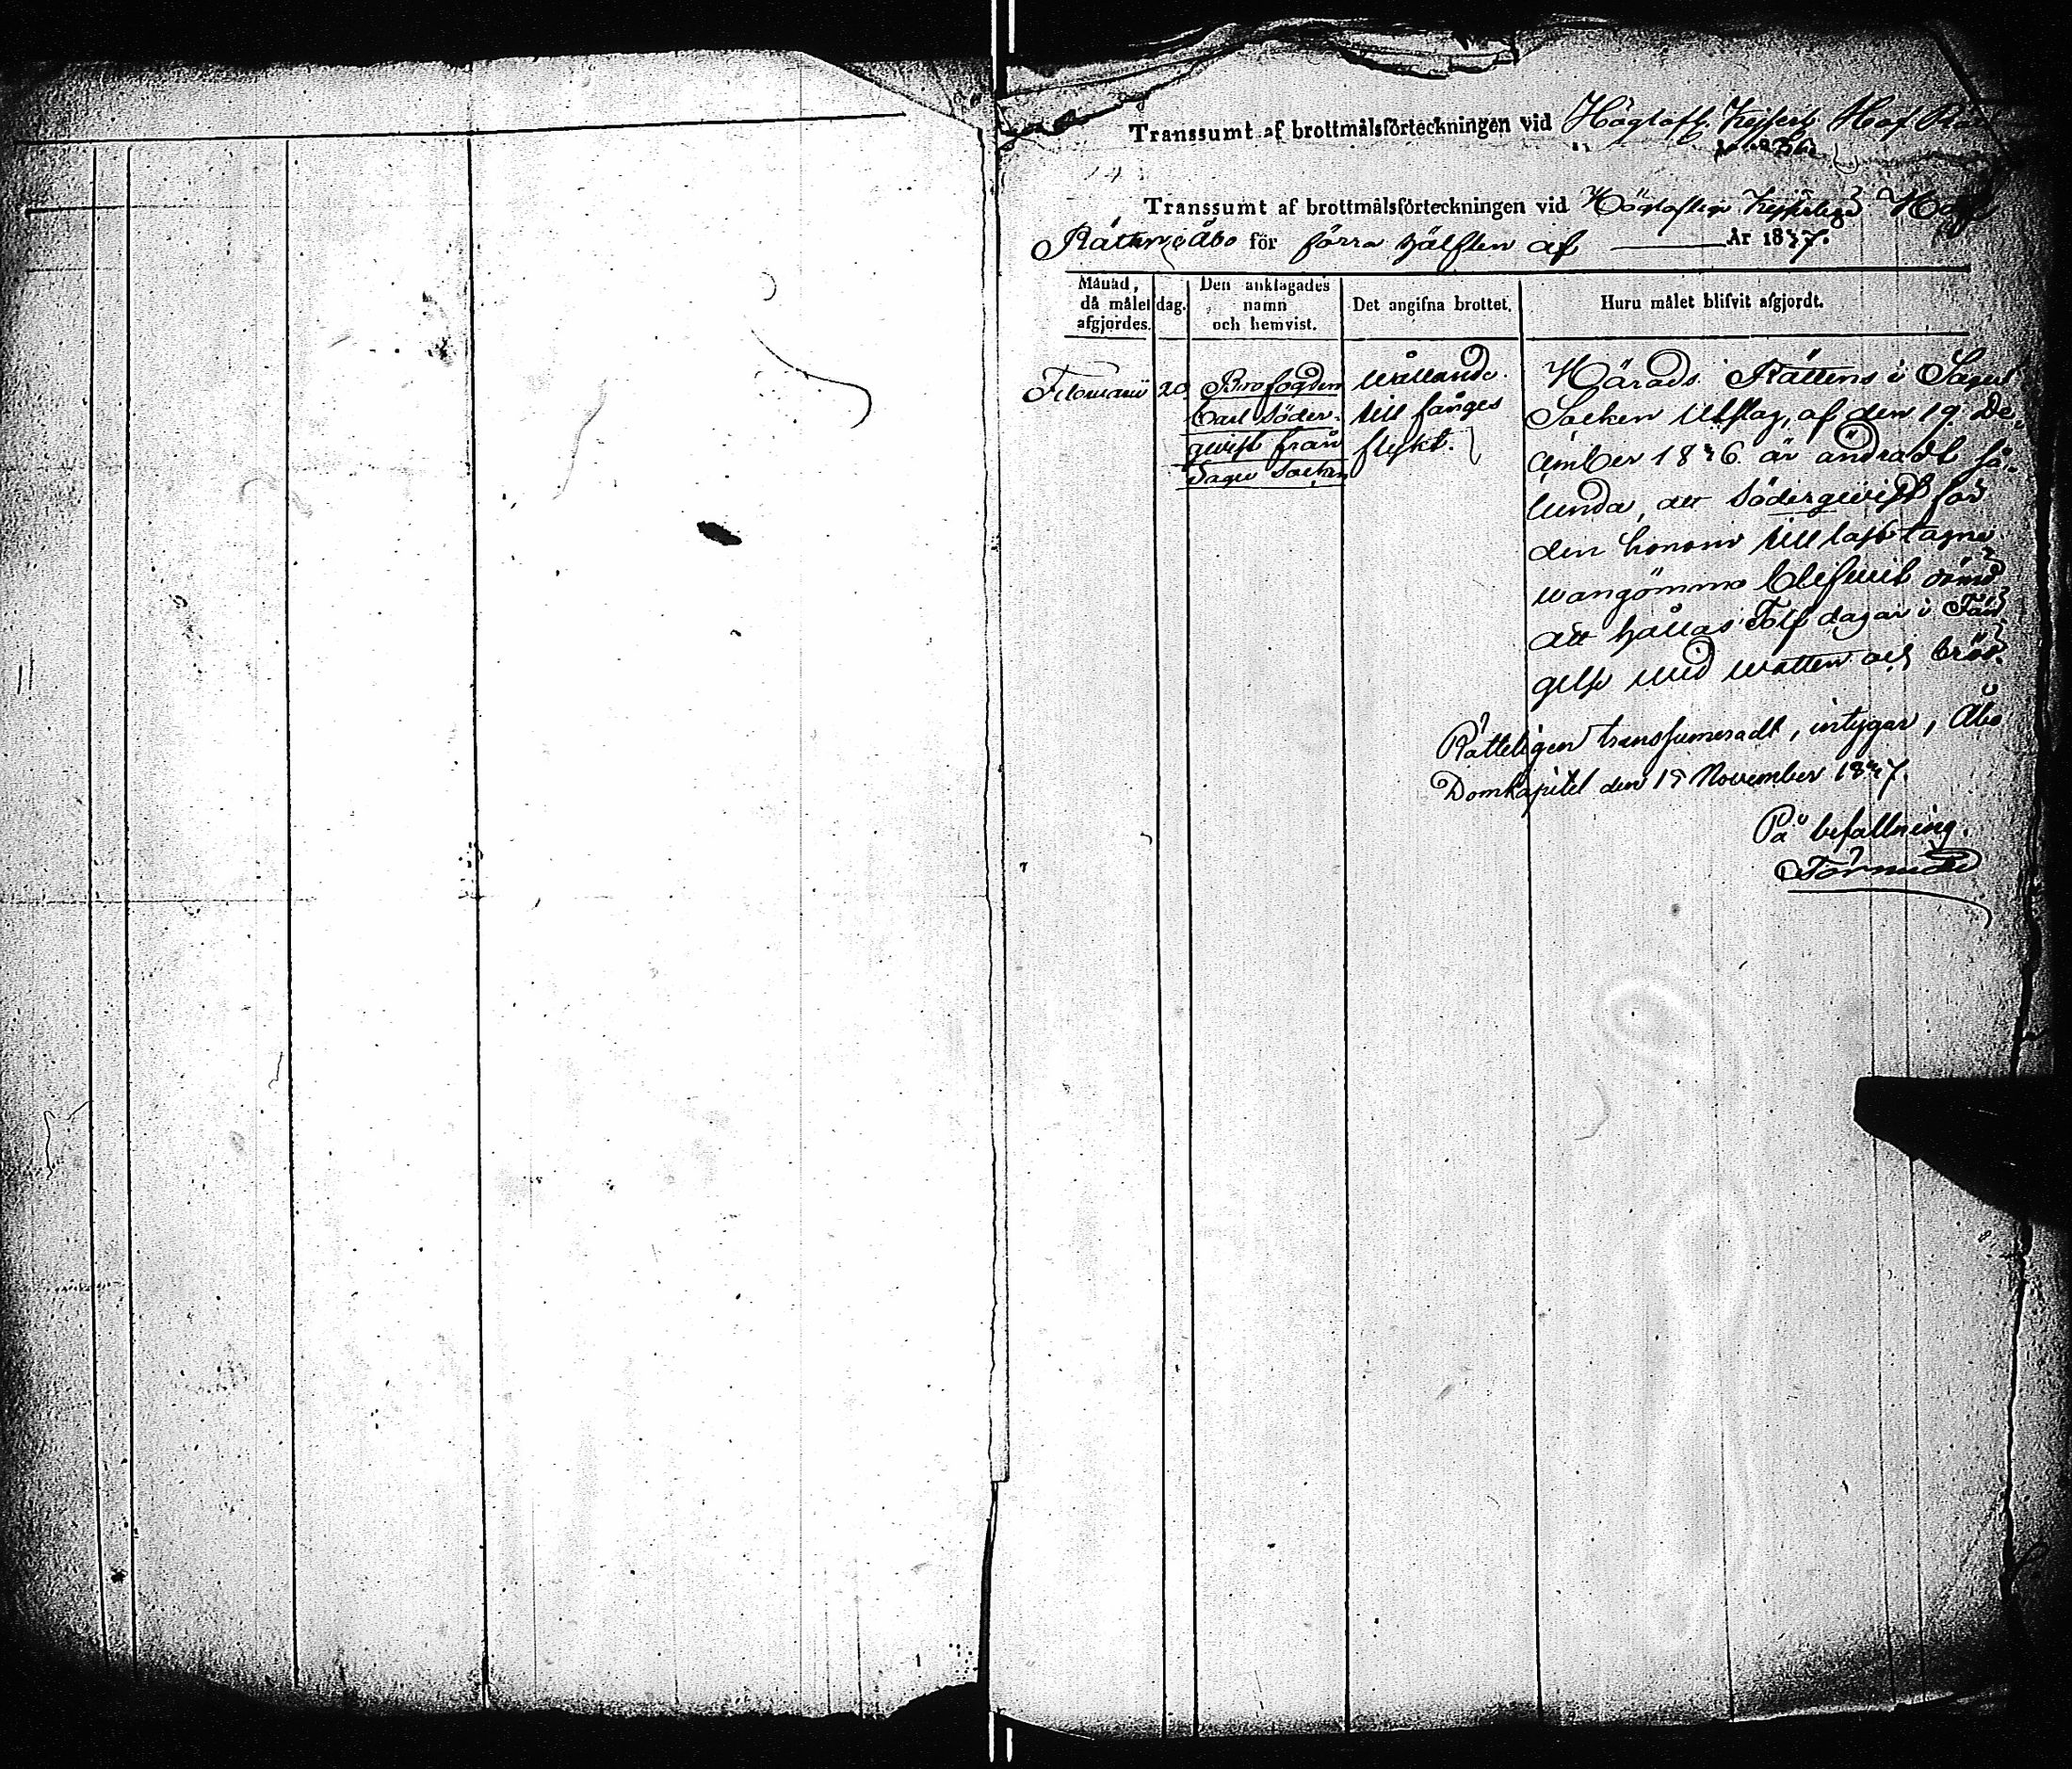 Transsumt af brottmålsförteckningen vid Höglofl. Kejserl. Hof Rät
Transsumt af brottmålsförteckningen vid Högloflige Kejserlige Hof
Rätten i Åbo för förra hälften af År 1847.
Månad, då målet afgjordes.
dag.
Den anklagades namn och hemvist.
Det angifna brottet.
Huru målet blifvit afgjordt.
Februarii
20
Brofogden
Carl Söder-
qwist från
Sagu Socken
wållande
till fånges
flykt.
Härads Rättens i Sagu
Socken Utslag, af den 19 De-
cember 1846 är ändradt så-
lunda, att Söderqwist för
den honom till last lagne
wangömmo blifwit dömd
att hållas Tolf dagar i Fän-
gelse wid watten och bröd.
Rätteligen transsumeradt, intygar, Åbo
Domkapitel den 15 November 1847.
På befallning.